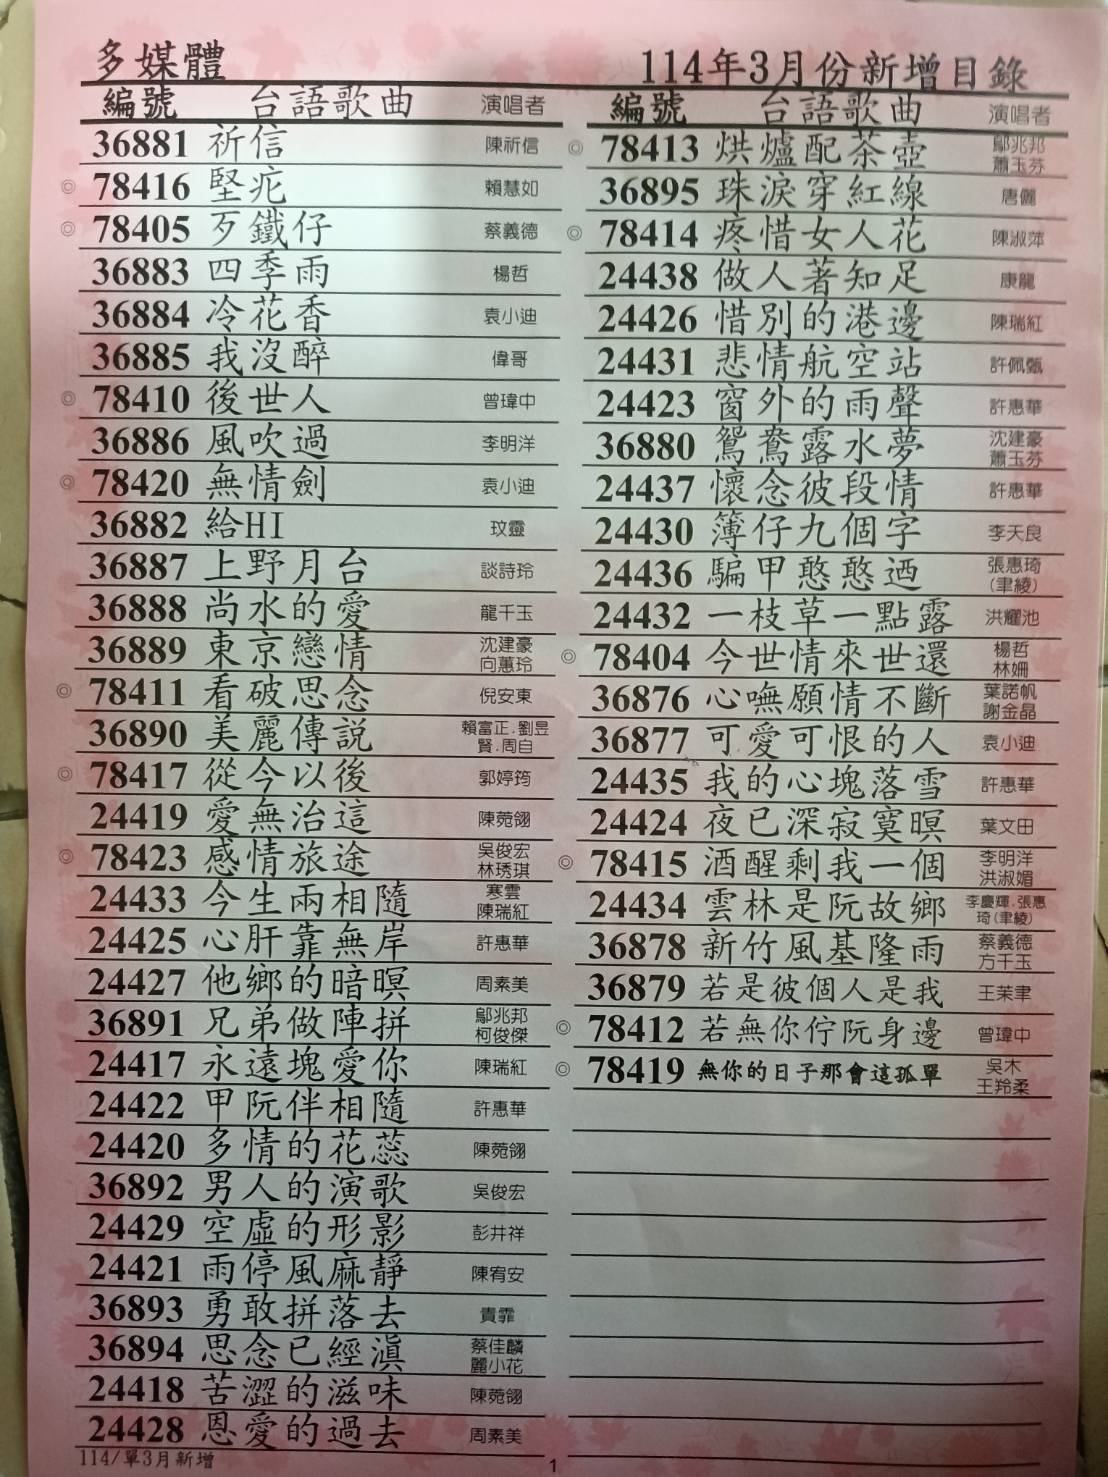 多媒體
114年3月份新增目錄
編號 台語歌曲 演唱者
36881 祈信 陳祈信
◎ 78416 堅疕 賴慧如
◎ 78405 歹鐵仔 蔡義德
36883 四季雨 楊哲
36884 冷花香 袁小迪
36885 我沒醉 偉哥
◎ 78410 後世人 曾瑋中
36886 風吹過 李明洋
◎ 78420 無情劍 袁小迪
36882 給HI 玟靈
36887 上野月台 談詩玲
36888 尚水的愛 龍千玉
36889 東京戀情 沈建豪 向蕙玲
◎ 78411 看破思念 倪安東
36890 美麗傳說 賴富正.劉昱賢.周自
◎ 78417 從今以後 郭婷筠
24419 愛無治這 陳菀翎
◎ 78423 感情旅途 吳俊宏 林琇琪
24433 今生兩相隨 寒雲 陳瑞紅
24425 心肝靠無岸 許惠華
24427 他鄉的暗暝 周素美
36891 兄弟做陣拼 鄔兆邦 柯俊傑
24417 永遠塊愛你 陳瑞紅
24422 甲阮伴相隨 許惠華
24420 多情的花蕊 陳菀翎
36892 男人的演歌 吳俊宏
24429 空虛的形影 彭井祥
24421 雨停風麻靜 陳宥安
36893 勇敢拼落去 貴霏
36894 思念已經滇 蔡佳麟 麗小花
24418 苦澀的滋味 陳菀翎
24428 恩愛的過去 周素美
114/單3月新增
編號 台語歌曲 演唱者
◎ 78413 烘爐配茶壺 鄔兆邦 蕭玉芬
36895 珠淚穿紅線 唐儷
◎ 78414 疼惜女人花 陳淑萍
24438 做人著知足 康龍
24426 惜別的港邊 陳瑞紅
24431 悲情航空站 許佩甄
24423 窗外的雨聲 許惠華
36880 鴛鴦露水夢 沈建豪 蕭玉芬
24437 懷念彼段情 許惠華
24430 簿仔九個字 李天良
24436 騙甲憨憨迺 張惠琦(聿綾)
24432 一枝草一點露 洪耀池
◎ 78404 今世情來世還 楊哲 林姍
36876 心嘸願情不斷 葉諾帆 謝金晶
36877 可愛可恨的人 袁小迪
24435 我的心塊落雪 許惠華
24424 夜已深寂寞暝 葉文田
◎ 78415 酒醒剩我一個 李明洋 洪淑媚
24434 雲林是阮故鄉 李慶輝.張惠琦(聿綾)
36878 新竹風基隆雨 蔡義德 方千玉
36879 若是彼個人是我 王茉聿
◎ 78412 若無你佇阮身邊 曾瑋中
◎ 78419 無你的日子那會這孤單 吳木 王羚柔
1